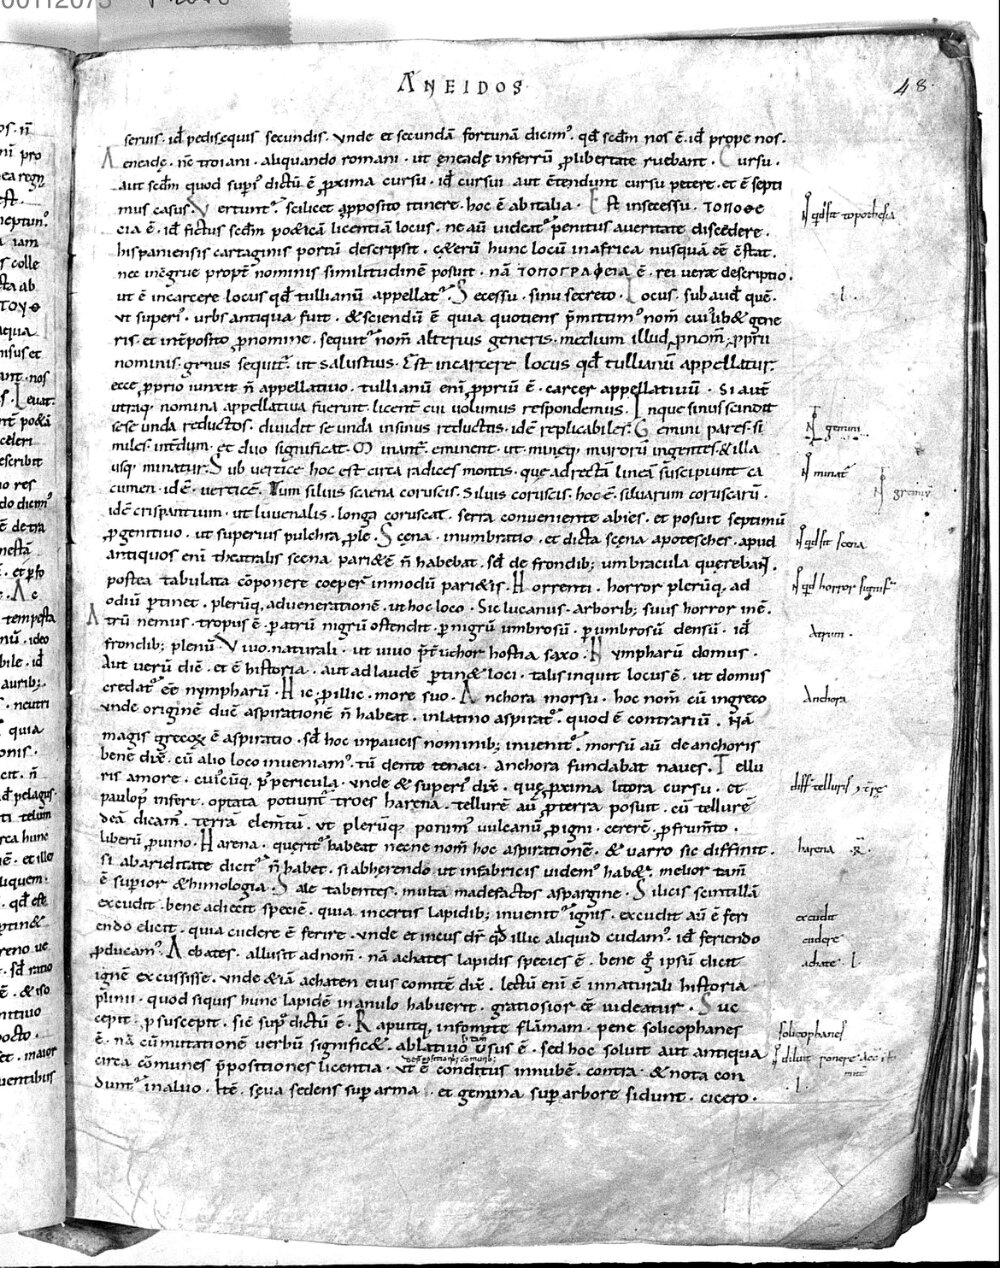 ANEIDOS
48
seruis · id pedisequis secundis · vnde et secundā fortunā dicim' · qđ scđm nos ē · id prope nos ·
Aeneadę · nē troiani · aliquando romani · ut eneadę inferrū p̱libertate ruebant · Cursu ·
aut scđm quod supr̄ dictū ē p̱xima cursu · id cursui aut ētendunt cursu petere · et ē septi
mus casus · Vertunt' · scilicet ap̱posito itinere · hoc ē ab italia · Est insecessu · τοποθε
cia ē · id fictus scđm poeticā licentiā locus · ne aū uideat' penitus aueritate discedere ·
hispaniensis cartaginis portū descripsit · cęterū hunc locū in africa nusquā eē ēstat ·
nec incōgrue propt' nominis similitudinē posuit · nā τοπογραφεια ē · rei uerae descriptio ·
ut ē incarcere locus qđ tullianū appellat' · Secessu · sinu secreto · Locus · subaud quę ·
vt superi' · urbs antiqua fuit · & sciendū ē quia quotiens p̄mittim' nom̄ cuilib& gene
ris et int̄posito p̱nomine · sequit' nom̄ alterius generis · medium illud p̱nom̄ p̱prii
nominis genus sequit' · ut salustius · Est incarcere locus qđ tullianū appellatur ·
ecce p̱prio iunxit n̄ appellatiuo · tullianū eni p̱priū ē · carcer appellatiuū · Si aut̄
utraq; nomina appellatiua fuerint · licent' cui uolumus respondemus · Inque sinus scindit
sese unda reductos · diuidit se unda insinus reductis · idē replicabiles · Gemini pares · si
miles · int̄dum · et duo significat · Minant' · eminent · ut minęq; muroru ingentes · & illa
usq; minatur · Sub uertice hoc est circa radices montis · que adrectā lineā suscipiunt ca
cumen · idē · uerticē · Tum siluis scaena coruscis · Siluis coruscis · hoc ē siluarum coruscarū ·
idē crispantium · ut iuuenalis · longa coruscat · serra conueniente abies · et posuit septimū
p̱genitiuo · ut superius pulchra p̱le · Scena · inumbratio · et dicta scęna apotesches · apud
antiquos eni theatralis scena pari&ē n̄ habebat · sed de frondib; umbracula querebant ·
postea tabulata cōponere coeper' inmodū pari&is · Horrenti · horror plerūq; ad
odiū p̱tinet · plerūq; aduenerationē · ut hoc loco · Sic lucanus · arborib; suus horror inē ·
Atrū nemus · tropus ē · p̱ atrū nigrū ostendit · p̱ nigrū umbrosū · p̱ umbrosū densū · id
frondib; plenū · Viuo · naturali · ut uiuo p̄t'uehor hostia saxo · Nympharū domus ·
Aut uerū diē · et ē historia · aut adlaudē p̱tin& loci · talis inquit locus ē · ut domus
credat' eē nympharū · Hic p̱ illic · more suo · Anchora morsu · hoc nom̄ cū ingreco
vnde originē ducē aspirationē n̄ habeat · inlatino aspirat' · quod ē contrariū · Nā
magis grecorū ē aspiratio · sed hoc inpaucis nominib; inuenit' · morsū aū de anchoris
bene dix̄ · cū alio loco inueniam' · tū dente tenaci · anchora fundabat naues · Tellu
ris amore · cui'cūq; p' pericula · vnde & superi' dix̄ · quę p̱xima litora cursu · et
paulop' infert · optata potiunt' troes harena · tellurē aū p̱ terra posuit · cū tellurē
deā dicam' · terrā elem̄tū · vt plerūq; ponim' uulcanū p̱ igni · cererē · p̱ frum̄to ·
liberū p̱ uino · Harena · querit' habeat necne nom̄ hoc aspirationē · & uarro sic diffinit ·
si abariditate dicit' n̄ habet · si abherendo ut infabricis uidem' hab& · melior tam̄
ē superior & himologia · Sale tabentes · multa madefactos aspargine · Silicis scintillā
excudit · bene adiecit speciē · quia incertis lapidib; inuenit' ignis · excudit aū ē feri
endo elicit · quia cudere ē ferire · vnde et incus dr̄ qđ illic aliquid cudam' · id feriendo
p̱ducam' · Achates · allusit adnom̄ · nā achates lapidis species ē · bene g̊ ipsū elicit
ignē excussisse · vnde &iā achaten eius comitē dix̄ · lectū eni ē innaturali historia
plinii · quod siquis hunc lapidē inanulo habuerit · gratiosior ēe uideatur · Sus
cepit · p̱ suscepit · sic supr̄ dictū ē · Rapuitq; infomite flāmam · pene solicophanes
ē · nā cū mutationē uerbū signific& · ablatiuo usus ē · sed hoc soluit aut antiqua
circa cōmunes p̄positiones licentia · ut ē conditus innubē · contra · & nota con
dunt' inaluo · Itē · sęua sedens sup̱ arma · et gemina sup̱ arbore sidunt · cicero ·
qđ sit topothesia
· l ·
gemini
minat'
gemini
qđ sit scena
qđ horror signif'
Atrum ·
Anchora
diff' telluris
harena · R ·
excudit
cudere
achate · l
solicophanes
· l ·